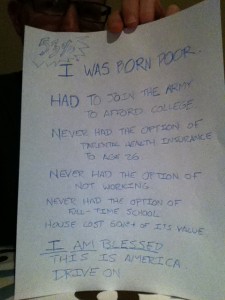 53%
I WAS BORN POOR.
HAD TO JOIN THE ARMY
TO AFFORD COLLEGE
NEVER HAD THE OPTION OF
PARENTAL HEALTH INSURANCE
TO AGE 26.
NEVER HAD THE OPTION OF
NOT WORKING.
NEVER HAD THE OPTION OF
FULL-TIME SCHOOL
HOUSE LOST 50%+ OF ITS VALUE
I AM BLESSED
THIS IS AMERICA
DRIVE ON